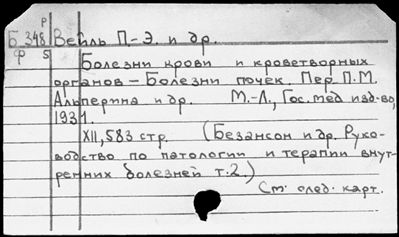 Р
Б 348 Вейль П-Э. и др.
Ф 5
Болезни крови и кроветворных
органов – Болезни почек. Пер. П.М.
Альперина и др. М.-Л., Гос. мед изд-во,
1931.
XII, 583 стр. (Безансон и др. Руко-
водство по патологии и терапии внут-
ренних болезней т.2.)
См. след. карт.